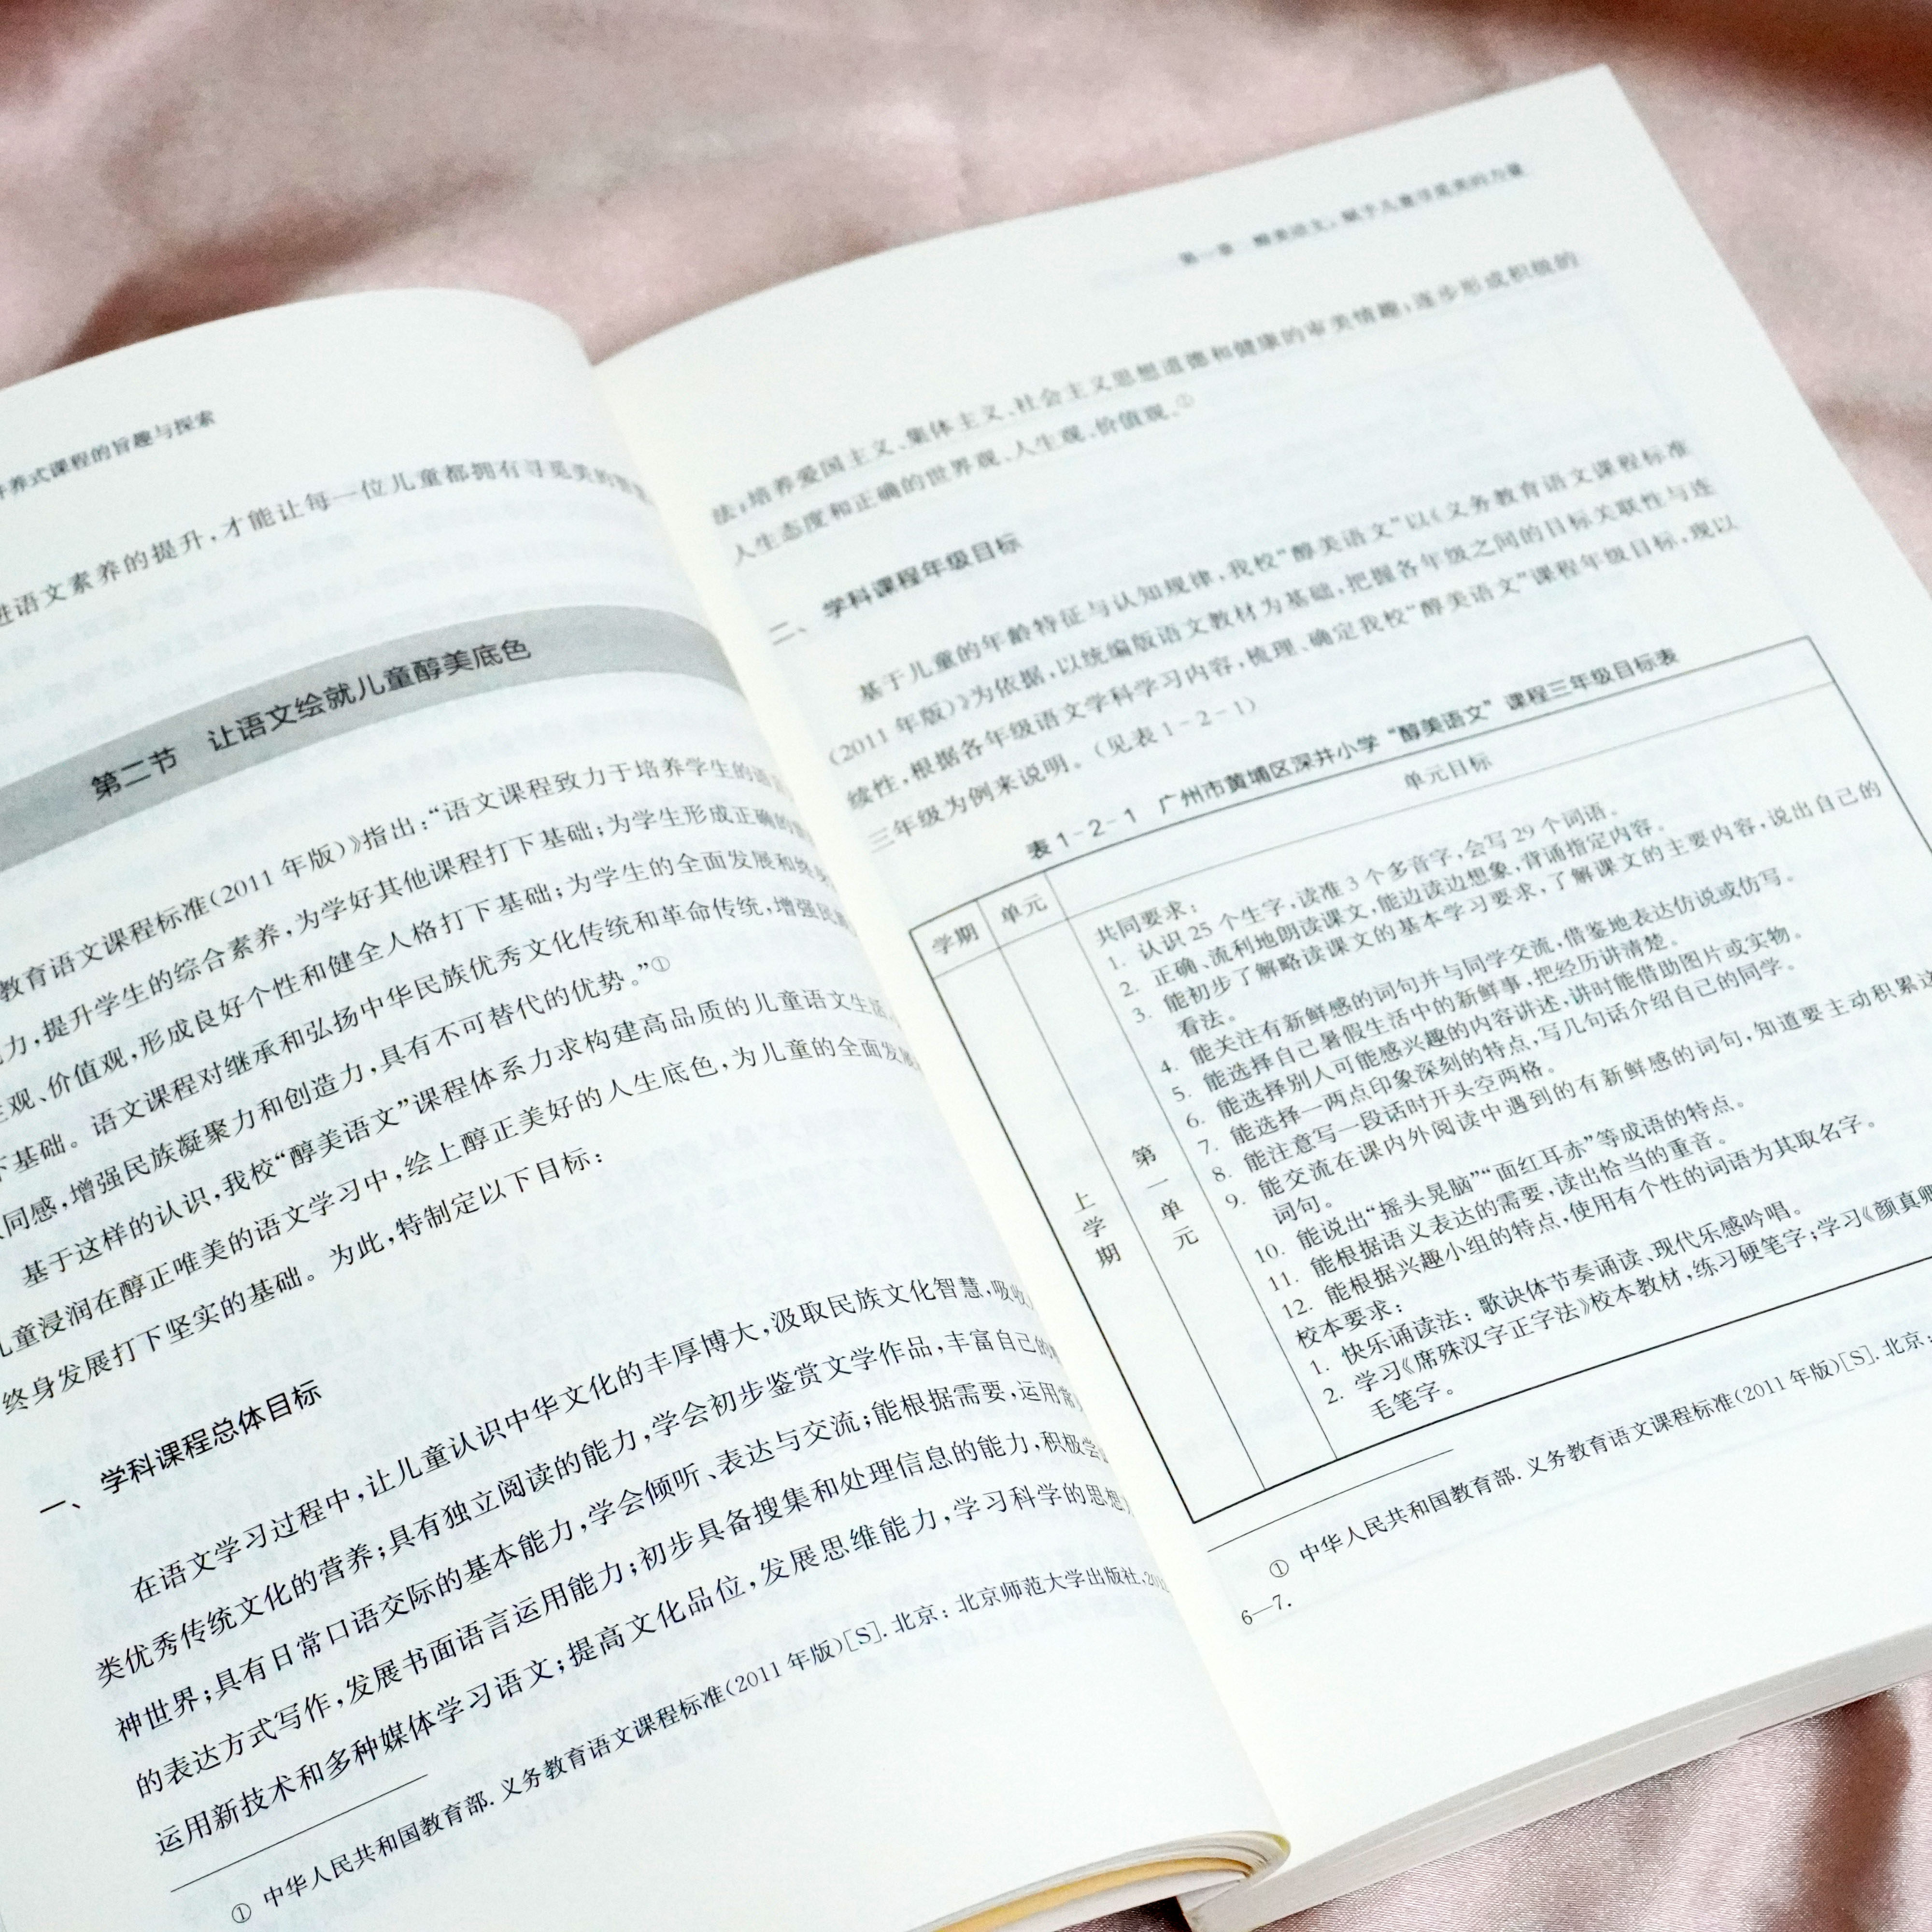 养式课程的旨趣与探索
进语文素养的提升，才能让每一位儿童都拥有寻觅美的
第二节 让语文绘就儿童醇美底色
教育语文课程标准（2011 年版）》指出：“语文课程致力于培养学生的
力，提升学生的综合素养，为学好其他课程打下基础；为学生形成正确的
观、价值观，形成良好个性和健全人格打下基础；为学生的全面发展和终
下基础。语文课程对继承和弘扬中华民族优秀文化传统和革命传统，增强民
同感，增强民族凝聚力和创造力，具有不可替代的优势。”①
基于这样的认识，我校“醇美语文”课程体系力求构建高品质的儿童语文生活，
儿童浸润在醇正唯美的语文学习中，绘上醇正美好的人生底色，为儿童的全面发
终身发展打下坚实的基础。为此，特制定以下目标：
一、学科课程总体目标
在语文学习过程中，让儿童认识中华文化的丰厚博大，汲取民族文化智慧，吸收
类优秀传统文化的营养；具有独立阅读的能力，学会初步鉴赏文学作品，丰富自己的
神世界；具有日常口语交际的基本能力，学会倾听、表达与交流；能根据需要，运用常
的表达方式写作，发展书面语言运用能力；初步具备搜集和处理信息的能力，积极尝
运用新技术和多种媒体学习语文；提高文化品位，发展思维能力，学习科学的思想
① 中华人民共和国教育部. 义务教育语文课程标准（2011 年版）[S]. 北京：北京师范大学出版社，
第一章 醇美语文：赋予儿童寻觅美的力量
法；培养爱国主义、集体主义、社会主义思想道德和健康的审美情趣，逐步形成积极的
人生态度和正确的世界观、人生观、价值观。①
二、学科课程年级目标
基于儿童的年龄特征与认知规律，我校“醇美语文”以《义务教育语文课程标准
（2011 年版）》为依据，以统编版语文教材为基础，把握各年级之间的目标关联性与连
续性，根据各年级语文学科学习内容，梳理、确定我校“醇美语文”课程年级目标，现以
三年级为例来说明。（见表1-2-1）
表1-2-1 广州市黄埔区深井小学“醇美语文”课程三年级目标表
学期 单元 单元目标
上学期 第一单元
共同要求：
1. 认识 25 个生字，读准 3 个多音字，会写 29 个词语。
2. 正确、流利地朗读课文，能边读边想象，背诵指定内容。
3. 能初步了解略读课文的基本学习要求，了解课文的主要内容，说出自己的
看法。
4. 能关注有新鲜感的词句并与同学交流，借鉴地表达仿说或仿写。
5. 能选择自己暑假生活中的新鲜事，把经历讲清楚。
6. 能选择别人可能感兴趣的内容讲述，讲时能借助图片或实物。
7. 能选择一两点印象深刻的特点，写几句话介绍自己的同学。
8. 能注意写一段话时开头空两格。
9. 能交流在课内外阅读中遇到的有新鲜感的词句，知道要主动积累这
词句。
10. 能说出“摇头晃脑”“面红耳赤”等成语的特点。
11. 能根据语义表达的需要，读出恰当的重音。
12. 能根据兴趣小组的特点，使用有个性的词语为其取名字。
校本要求：
1. 快乐诵读法：歌诀体节奏诵读、现代乐感吟唱。
2. 学习《席殊汉字正字法》校本教材，练习硬笔字；学习《颜真卿
毛笔字。
① 中华人民共和国教育部. 义务教育语文课程标准（2011 年版）[S]. 北京：
6—7.